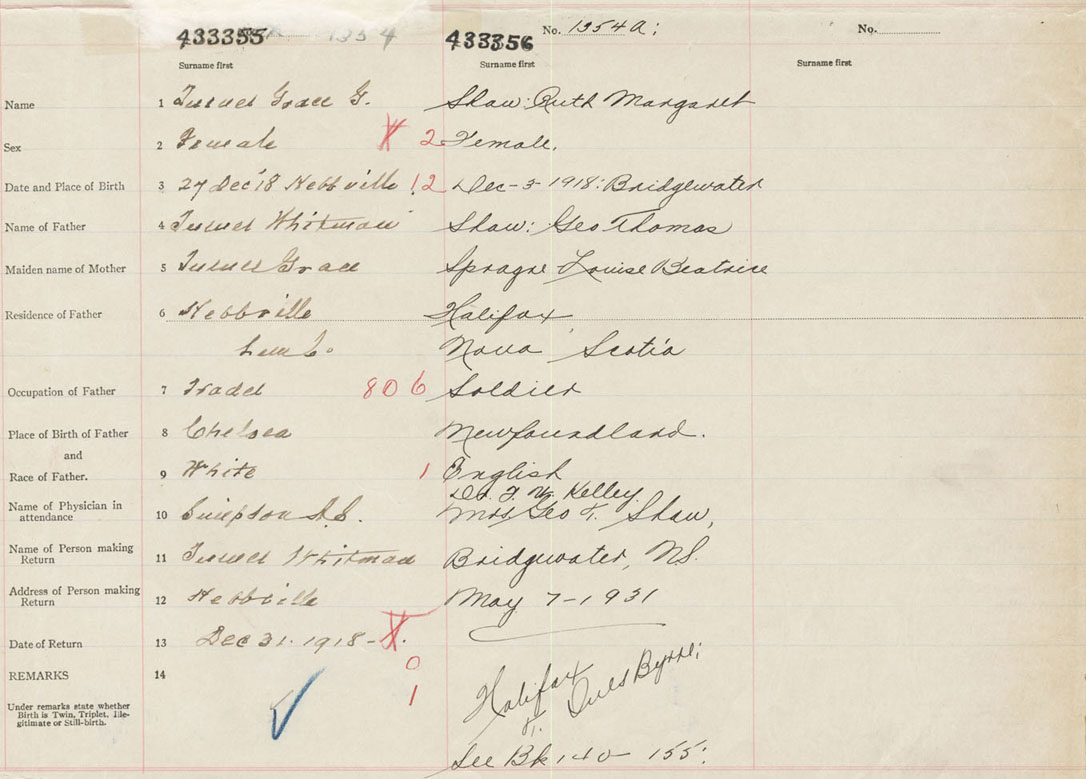 433355 1354
433356
No. 1354A:
No.
Surname first
Surname first
Surname first
Name 1 Turner Grace G. Shaw: Ruth Margaret
Sex 2 Female 2 Female.
Date and Place of Birth 3 27 Dec '18 Hebbville 12 Dec-3-1918: Bridgewater
Name of Father 4 Turner Whitman Shaw: Geo Thomas
Maiden name of Mother 5 Turner Grace Sprague Louise Beatrice
Residence of Father 6 Hebbville Halifax,
Lun Co. Nova Scotia
Occupation of Father 7 Trader 806 Soldier
Place of Birth of Father 8 Chelsea Newfoundland.
and
Race of Father. 9 White 1 English
Dr. Kelley.
Name of Physician in
attendance 10 Simpson Mrs. Geo T. Shaw,
Name of Person making
Return 11 Turner Whitman Bridgewater, N.S.
Address of Person making
Return 12 Hebbville May 7-1931
Date of Return 13 Dec 31. 1918-
0
REMARKS 14
1
Under remarks state whether
Birth is Twin, Triplet, Ille-
gitimate or Still-birth.
Halifax
Byrne;
See Bk 140 - 155: